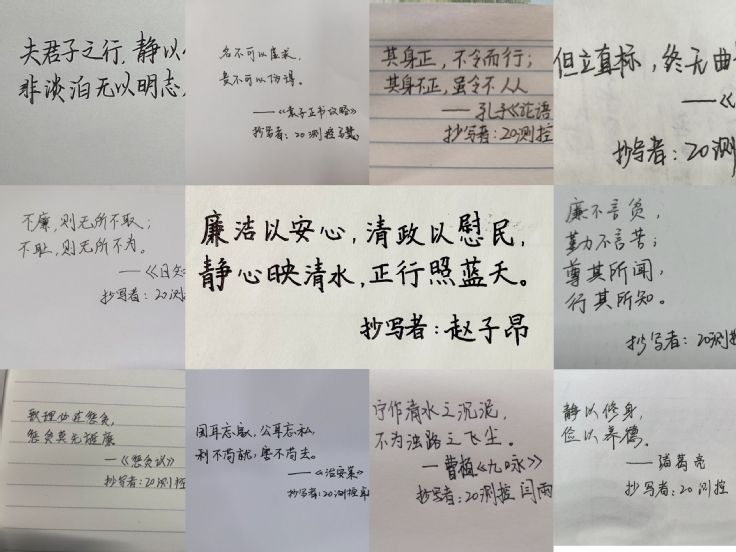 夫君子之行,静以
非淡泊无以明志,
名不可以虚求,
贵不可以伪得。
——《袁子正书·
抄写者:20测控
其身正,不令而行;
其身不正,虽令不从
——孔子《论语
抄写者:20测控
但立直标,终无曲
——《
抄写者:20测
不廉,则无所不取;
不耻,则无所不为。
——《日知
抄写者:20测
廉洁以安心,清政以慰民,
静心映清水,正行照蓝天。
抄写者:赵子昂
廉不言贫,
勤不言苦;
尊其所闻,
行其所知。
抄写者:20测控
敦理必在
莫先
抄写者:20测控
国耳忘家,公耳忘私,
利不苟就,害不苟去。
——《治安策》
抄写者:20测控
宁作清水之沉泥,
不为浊路之飞尘。
——曹植《九咏》
抄写者:20测控 闫雨
静以修身,
俭以养德。
——诸葛亮
抄写者:20测控